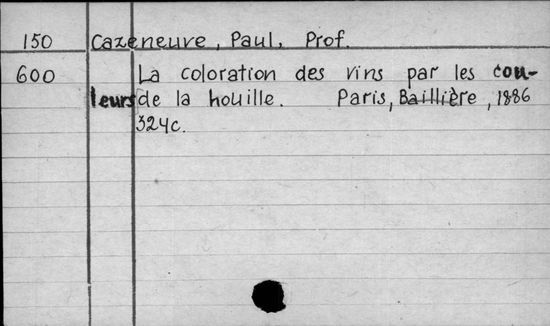 150 Cazeneuve, Paul, Prof.
600 La coloration des vins par les cou-
leurs de la houille. Paris, Baillière, 1886
324c.